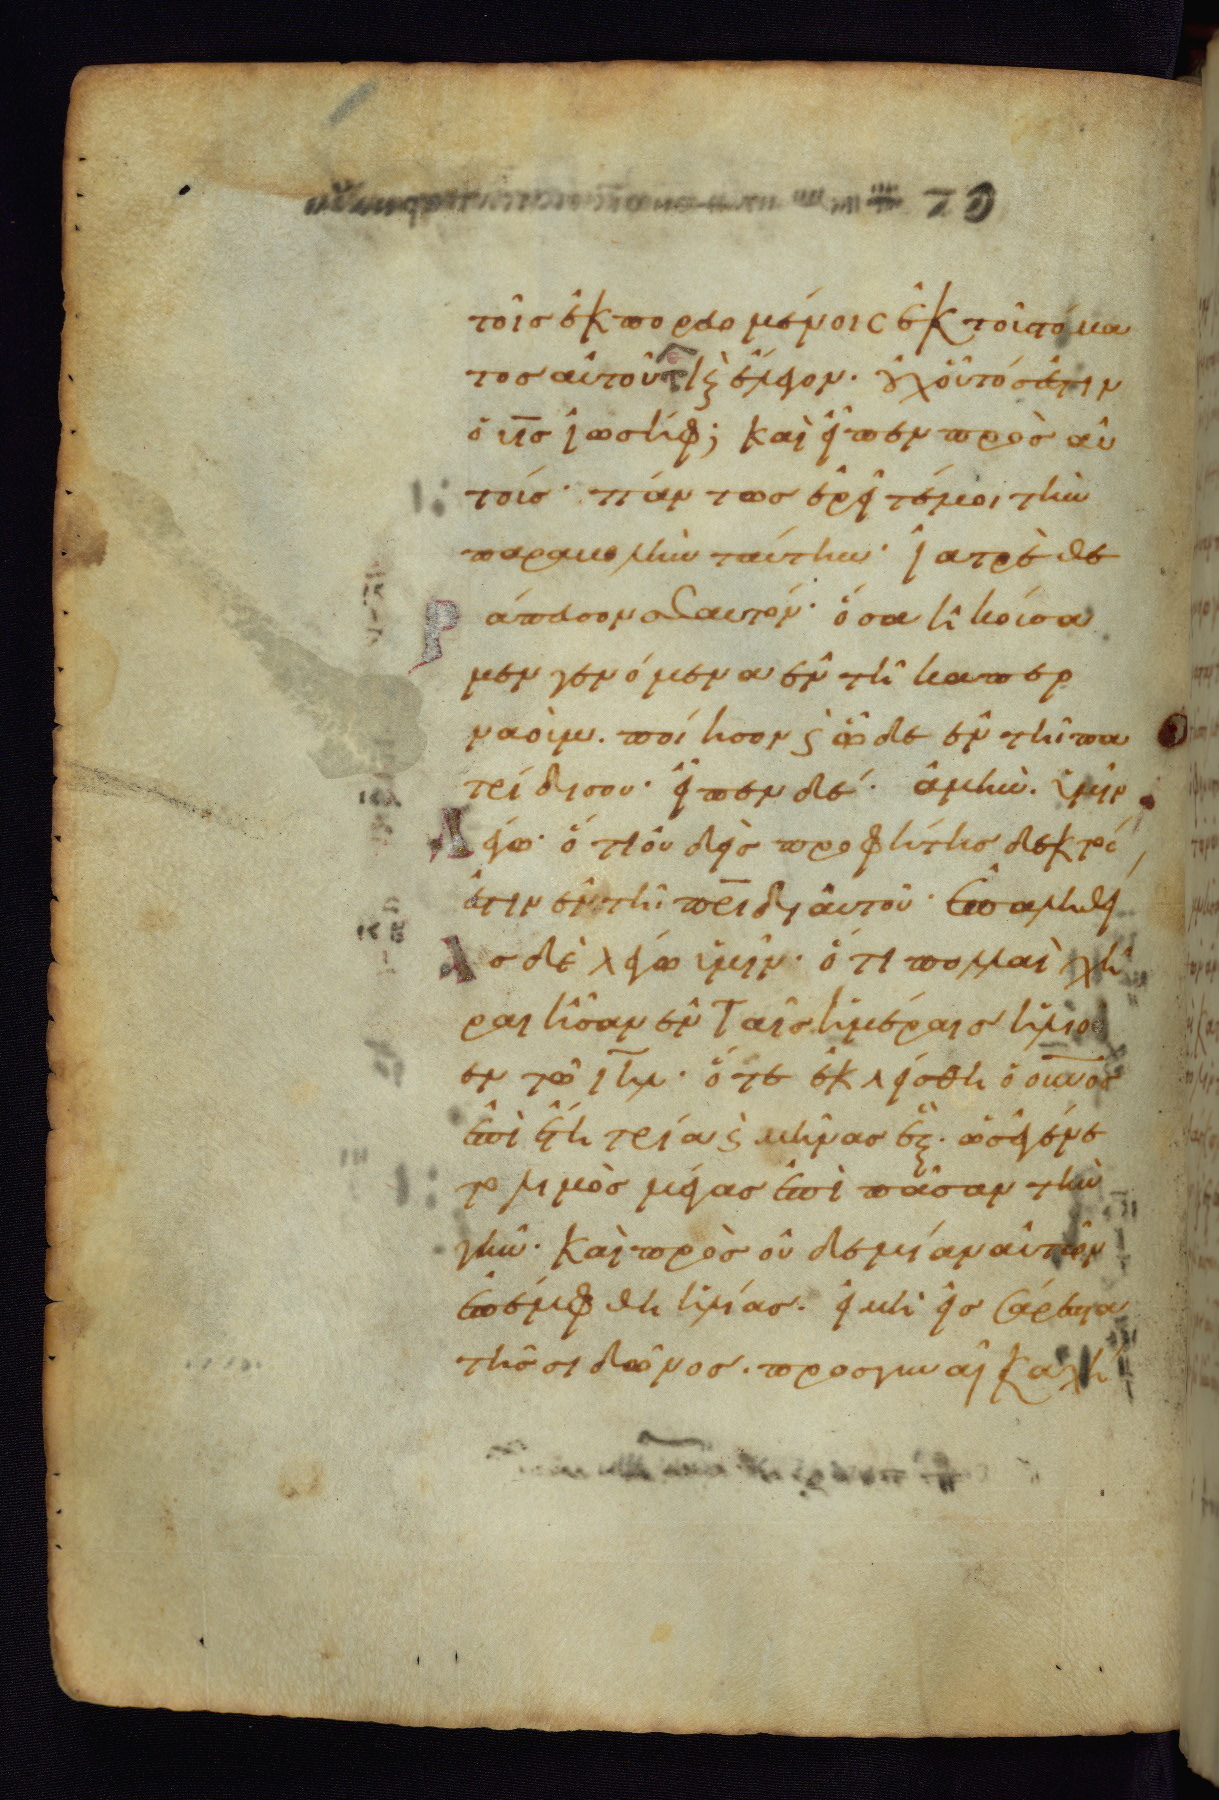 τοῖσ ἐκπορευομένοισ ἐκ τοῦ στόμα
τοσ αὐτοῦ κ(αὶ) ἔλεγον· οὐχ οὗτόσ ἐστιν
ὁ υ̅σ̅ ἰωσήφ; καὶ εἶπεν πρὸσ αὐ
τούσ· πάντωσ ἐρεῖτέ μοι τὴν
παραβολὴν ταύτην· ἰατρὲ θε
ράπευσον σεαυτόν· ὅσα ἠκούσα
μεν γενόμενα ἐν τῆ καπερ
ναούμ. ποίησον κ(αὶ) ὧδε ἐν τῆ πα
τρίδι σου· εἶπεν δέ· ἀμὴν. ὑμῖν
λέγω· ὅτι οὐδεὶσ προφήτησ δεκτόσ
ἐστιν ἐν τῆ π̅ρ̅ιδι αὐτοῦ· ἐπ' ἀληθεί
ασ δὲ λέγω ὑμῖν· ὅτι πολλαὶ χῆ
ραι ἦσαν ἐν ταῖσ ἡμέραισ ἡλιοῦ
ἐν τῶ ι̅η̅λ̅· ὅτε ἐκλείσθη ὁ ο̅υ̅ν̅ὸσ
ἐπὶ ἔτη τρία κ(αὶ) μῆνασ ἕξ· ὡσ ἐγένε
το λιμὸσ μέγασ ἐπὶ πᾶσαν τὴν
γῆν· καὶ πρὸσ οὐδεμίαν αὐτῶν
ἐπέμφθη ἡλίασ. εἰ μὴ εἰσ σάρεπτα
τῆσ σιδῶνοσ. πρὸσ γυναῖκα χή